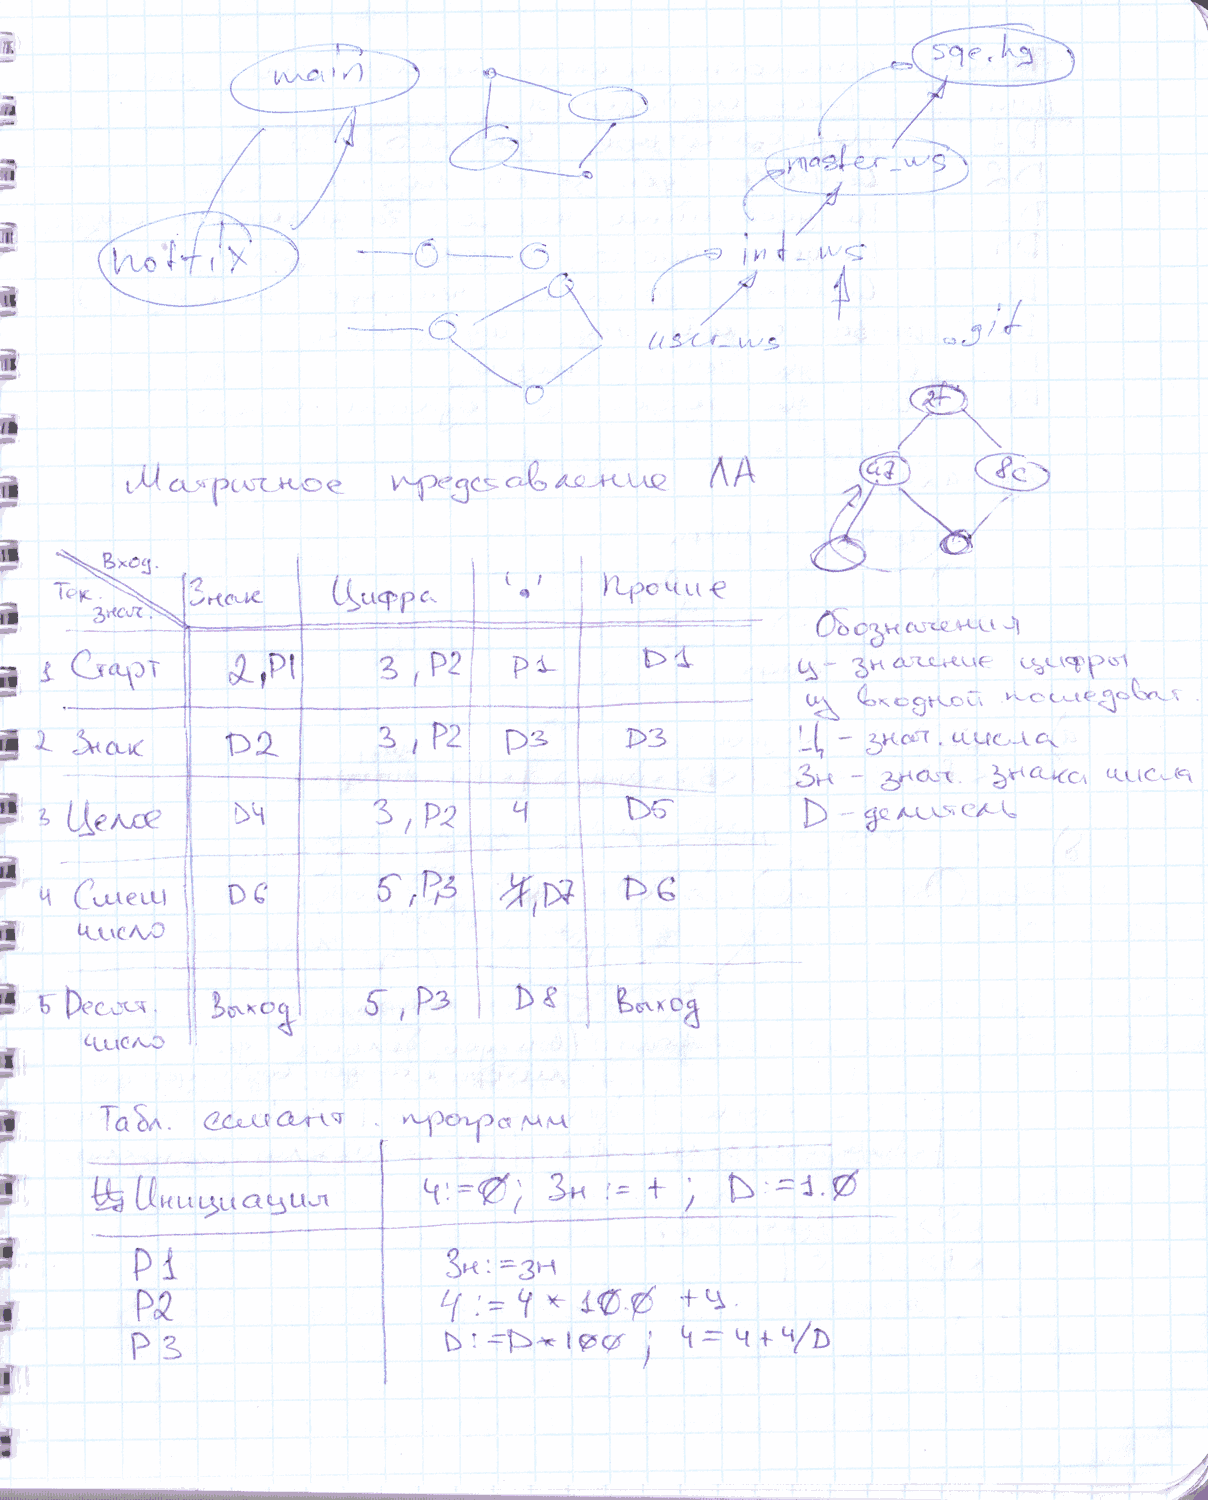 main
sqe.hg
master_ws
hotfix
int_ws
user_ws
.git
2f
47
8c
Матричное представление ЛА
Вход.
Тек. знач.
Знак Цифра '.' Прочие
1 Старт 2,P1 3,P2 P1 D1
2 Знак D2 3,P2 D3 D3
3 Целое D4 3,P2 4 D5
4 Смеш число D6 5,P3 D7 D6
5 Десят. число Выход 5,P3 D8 Выход
Обозначения
ц - значение цифры
из входной последоват.
Ц - знач. числа
Зн - знач. знака числа
D - делитель
Табл. семант. программ
Инициация Ч:=0; Зн:=+; D:=1.0
P1 Зн:=зн
P2 Ч:=Ч*10.0+ч.
P3 D:=D*100; Ч=Ч+Ч/D